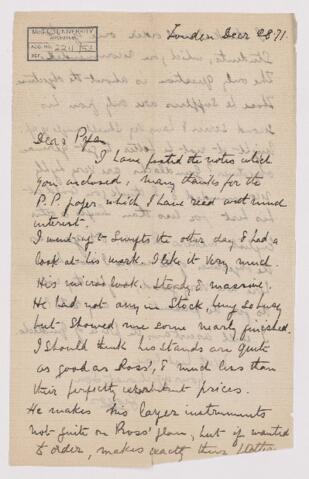 McGILL UNIVERSITY
ACC. NO.
REF.
London Decr 28. 71
Dear Pyer
I have posted the notes which
you enclosed, many thanks for the
P.P. paper which I have read with much
interest.
I went up to Swifts the other day & had a
look at his work. I like it very much.
His micros look, Steady & massive;
He had not any in Stock, being so busy
but Showed me some nearly finished.
I should think his stands are quite
as good as Ross', & much less than
their perfectly exorbitant prices.
He makes his larger instruments
not quite on Ross' plan, but if wanted
to order, makes exactly their